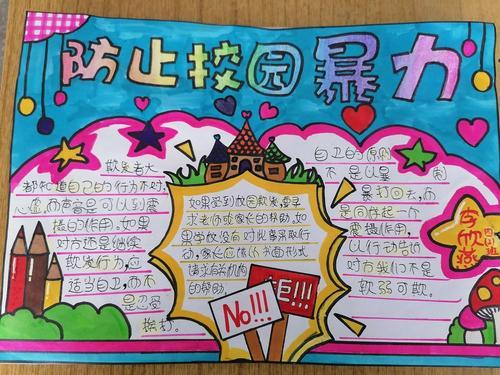 防止校园暴力
欺负者大
都知道自己的行为不对,
心虚,而声音是可以到震
慑的作用。如果
对方还是继续
欺负行为,应
适当自卫,而不
是忍受
挨打。
如果受到校园欺负,要寻
求老师或家长的帮助,如
果学校没有对此事采取行
动,家长应该以书面形式
请求有关机构
的帮助。
No!!!
拒!!!
自卫的原则
不是以暴制
暴打回去,而
是同样起一个
震慑作用,
以行动告诉
对方我们不是
软弱可欺。